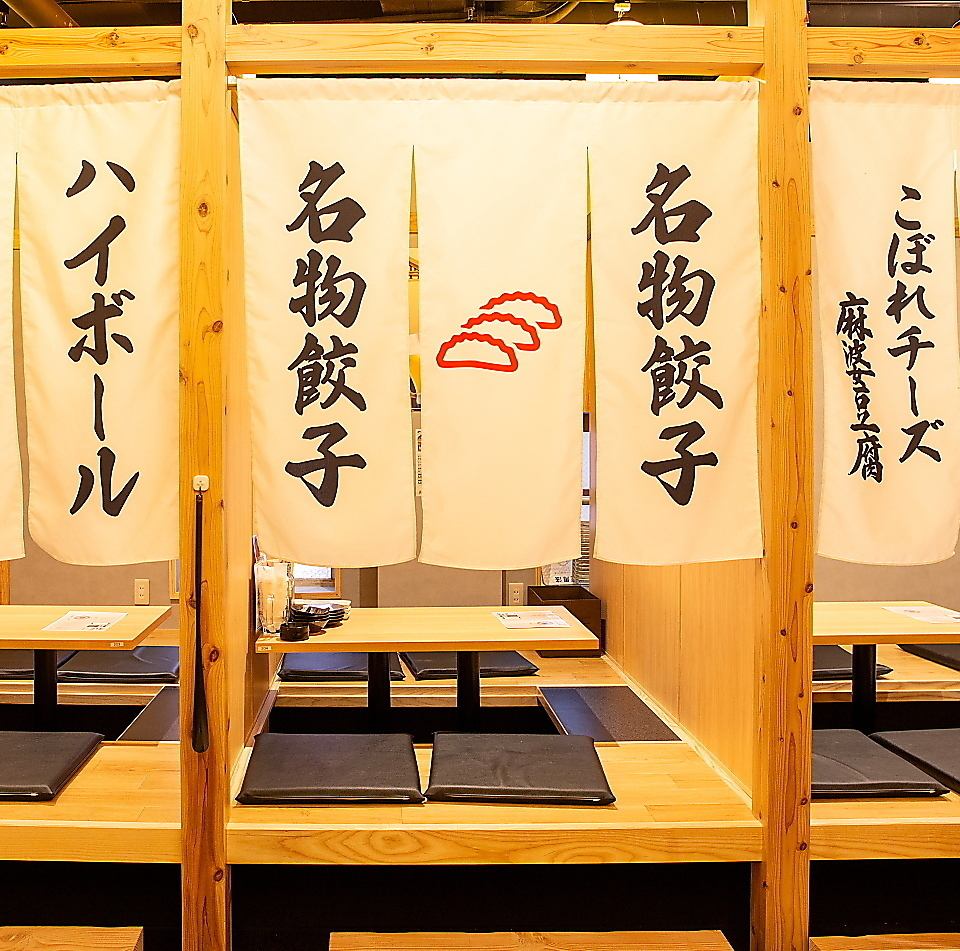 ハイボール
名物餃子
名物餃子
こぼれチーズ
麻婆豆腐